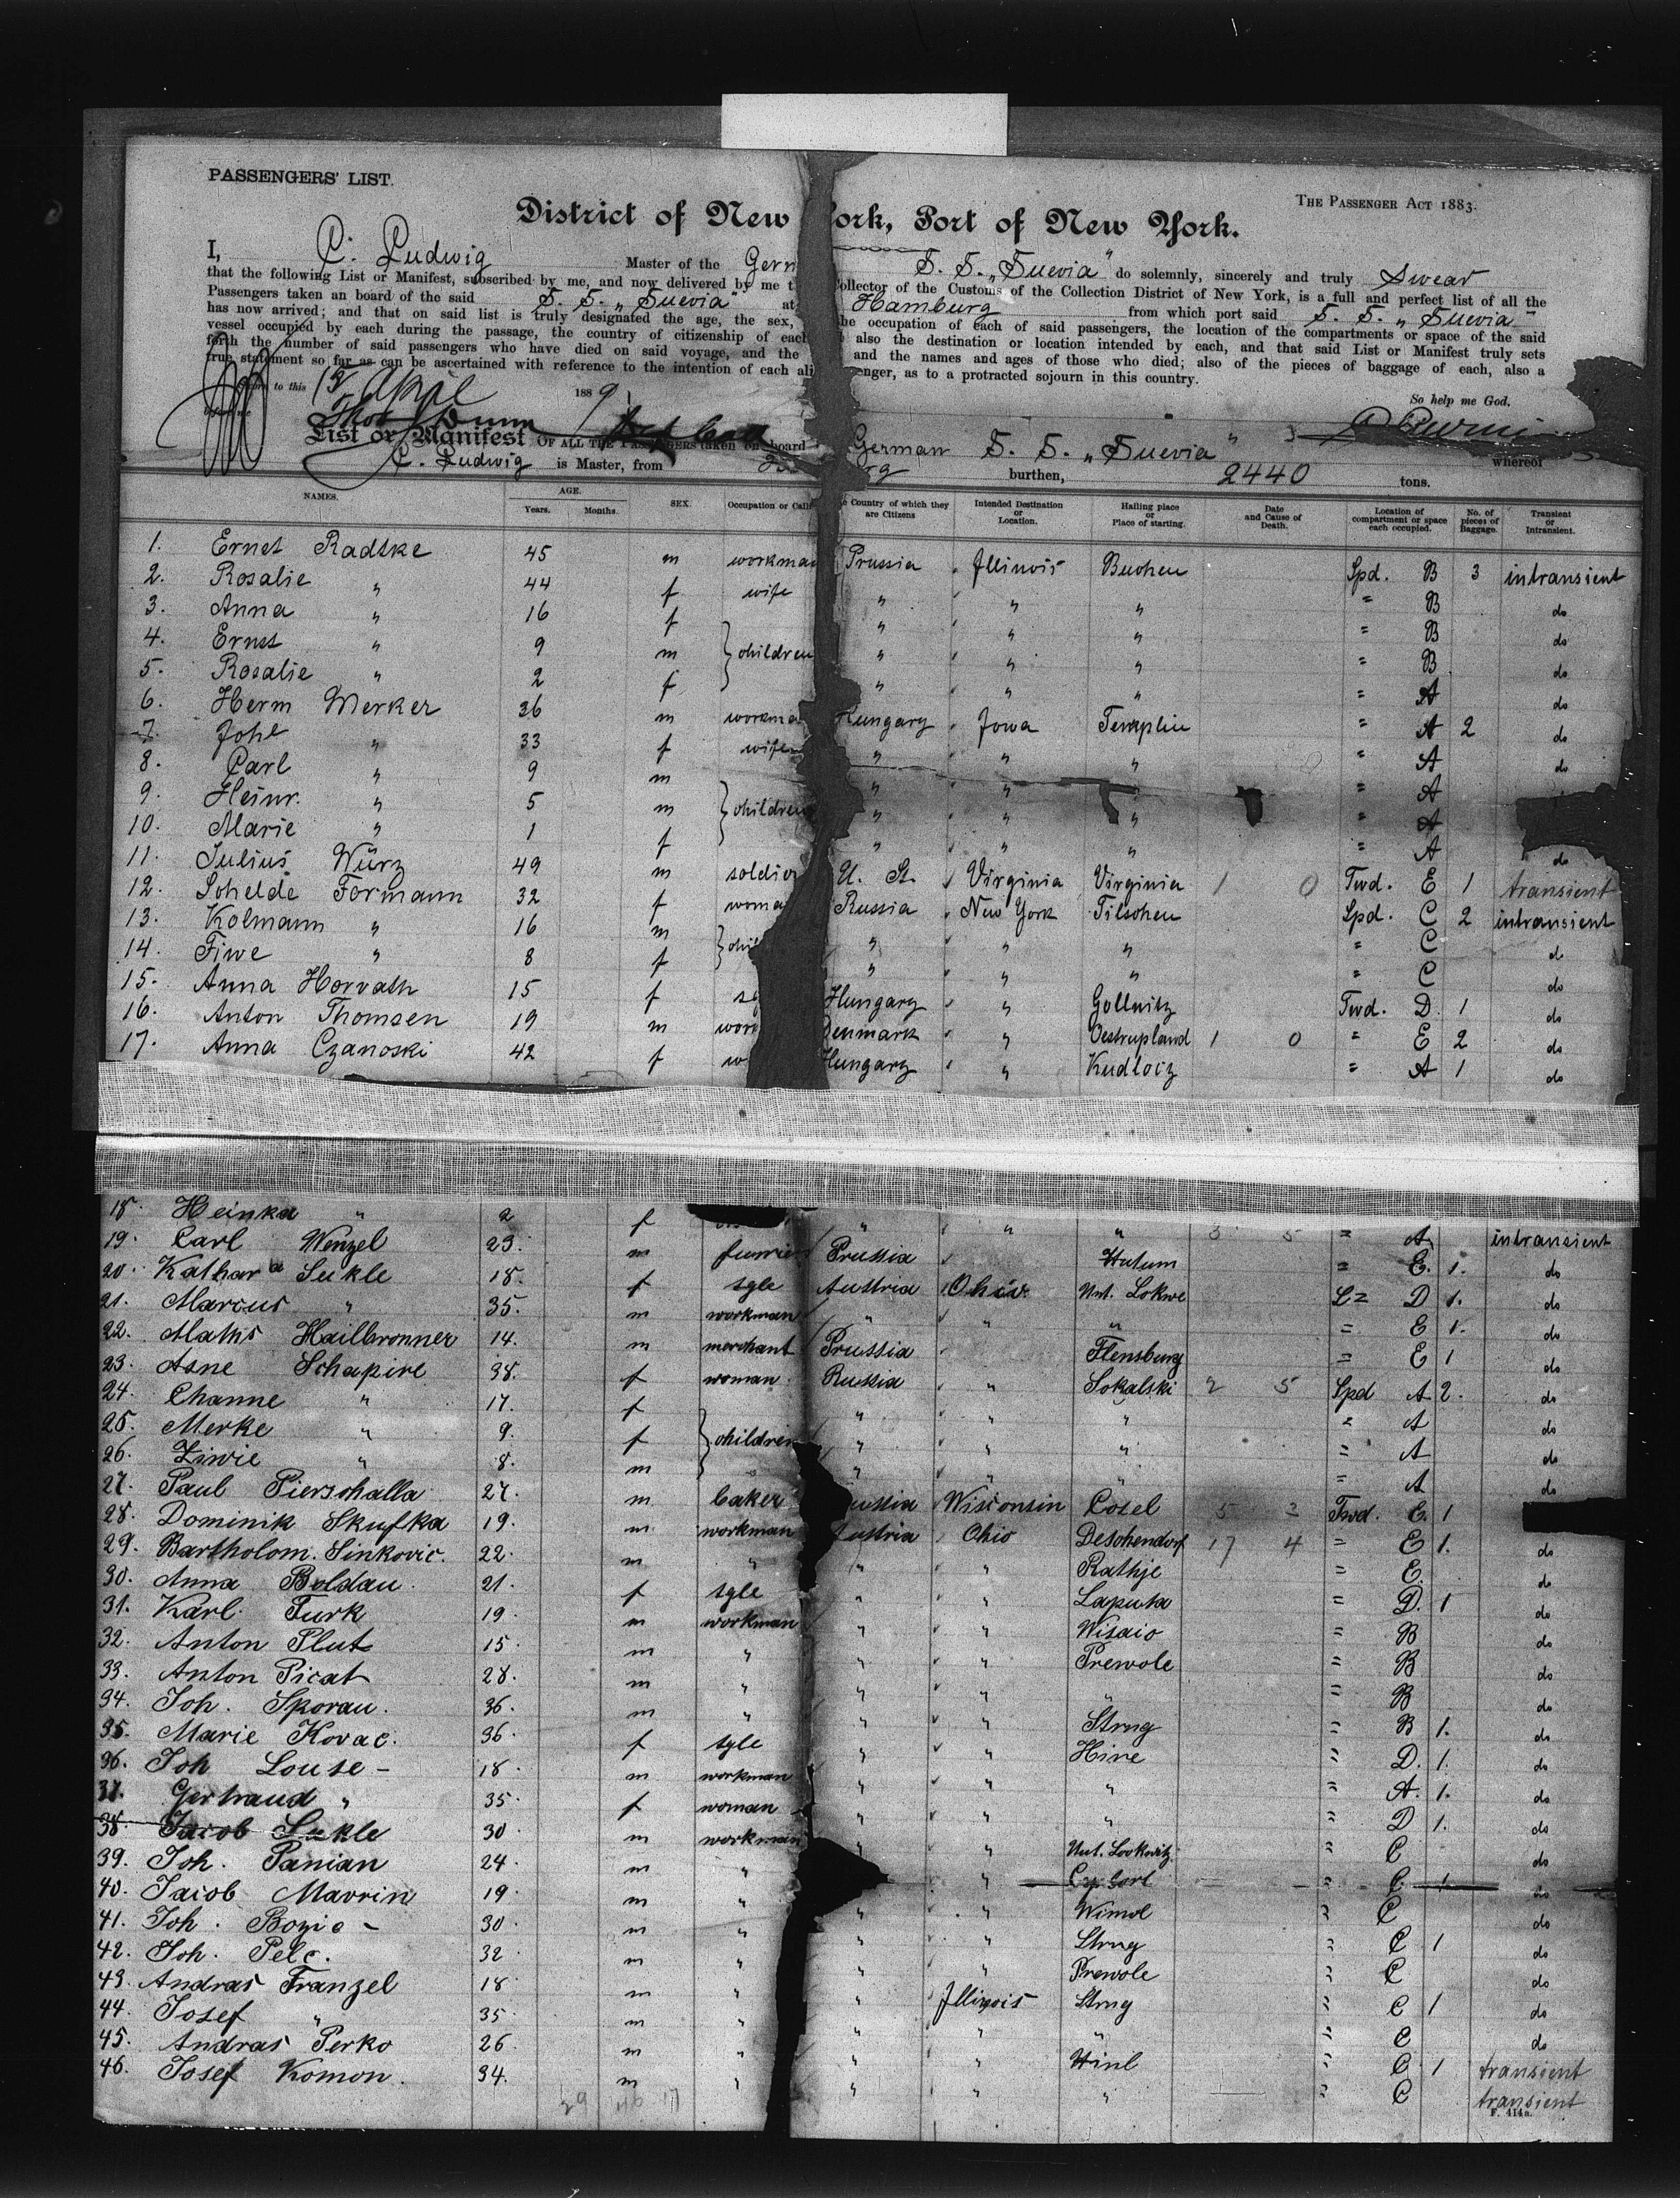 PASSENGERS' LIST.
THE PASSENGER ACT 1883.
District of New York, Port of New York.
I, C. Ludwig Master of the Germ S. S. „Suevia" do solemnly, sincerely and truly Swear
that the following List or Manifest, subscribed by me, and now delivered by me t Collector of the Customs of the Collection District of New York, is a full and perfect list of all the
Passengers taken an board of the said S. S. „Suevia" at Hamburg from which port said S. S. „Suevia"
has now arrived; and that on said list is truly designated the age, the sex, the occupation of each of said passengers, the location of the compartments or space of the said
vessel occupied by each during the passage, the country of citizenship of each also the destination or location intended by each, and that said List or Manifest truly sets
forth the number of said passengers who have died on said voyage, and the and the names and ages of those who died; also of the pieces of baggage of each, also a
true statement so far as can be ascertained with reference to the intention of each ali enger, as to a protracted sojourn in this country.
to this 12 April 1889
So help me God.
List or Manifest OF ALL THE PASSENGERS taken on board German S. S. „Suevia" whereof
C. Ludwig is Master, from rg burthen, 2440 tons.
NAMES. AGE. Years. Months. SEX. Occupation or Calli e Country of which they are Citizens Intended Destination or Location. Hailing place or Place of starting. Date and Cause of Death. Location of compartment or space each occupied. No. of pieces of Baggage. Transient or Intransient.
1. Ernst Radtke 45 m workman Prussia Illinois Buchen Spd. B 3 intransient
2. Rosalie " 44 f wife " " " = B do
3. Anna " 16 f " " " = B do
4. Ernst " 9 m } children " " " = B do
5. Rosalie " 2 f " " " = A do
6. Herm Merker 36 m workma Hungary Iowa Templin = A 2 do
7. Johe " 33 f wife " " " = A do
8. Carl " 9 m " " " = A
9. Heinr. " 5 m } children " " " = A
10. Marie " 1 f " " " = A do
11. Julius Würz 49 m soldier U. St. Virginia Virginia 1 0 Twd. E 1 transient
12. Schelde Formann 32 f woma Russia New York Tilschen Spd. C 2 intransient
13. Kolmann " 16 m } chil " " " = C do
14. Fiwe " 8 f " " " = C do
15. Anna Horvath 15 f Hungary " Gollnitz Twd. D. 1 do
16. Anton Thomsen 19 m wor Denmark " Oestrupland 1 0 = E 2 do
17. Anna Czanoski 42 f w Hungary " Kudlociz = A 1 do
18. Heinka " 2 f " " " 3 5 = A intransient
19. Carl Wenzel 23. m Prussia = E. 1. do
20. Kathar a Sukle 18. f sgle Austria Ohio Unt. Lokwe D 1. do
21. Marcus " 35. m workman " " " = E 1. do
22. Maths Hailbronner 14. m merchant Prussia Flensburg = E 1 do
23. Asne Schapire 38. f woman Russia " Sokalski 2 5 Spd A 2. do
24. Channe " 17. f " " " = A do
25. Merke " 9. f } children " " " = A do
26. Ziwie " 8. m " " " = A do
27. Paul Pierschalla 27. m baker ussia Wisconsin Cosel 5 2 Twd. E. 1
28. Dominik Skufka 19. m workman Austria Ohio Deschendorf 17 4 = E 1. do
29. Bartholom. Sinkovic. 22. m " " " Rathje = E. do
30. Anna Boldau. 21. f sgle " " Laputa = D. 1 do
31. Karl. Turk 19. m workman " " Wisaio = B do
32. Anton Plut 15. m " " " Prewole = B do
33. Anton Picat 28. m " " " " = B do
34. Joh. Sporau. 36. m " " " Strug = B 1. do
35. Marie Kovac. 36. f sgle " " Hine = D. 1. do
36. Joh Louse - 18. m workman " " " = A. 1. do
37. Gertraud " 35. f woman " " " = D 1. do
38 Jacob Sukle 30. m workman " " Unt. Lookwitz = C do
39. Joh. Panian 24. m " " " = C 1
40. Jacob Mavrin 19. m " " " Wimol = C do
41. Joh. Bozic - 30. m " " " Strug = C 1 do
42. Joh. Pelc. 32. m " " " Prewole = C do
43. Andras Franzel 18. m " " Illinois Strug = C 1 do
44. Josef " 35. m " " " " = C do
45. Andras Perko 26. m " " " Hinl = C 1 transient
46. Josef Komon. 34. m " " " " = C transient
F. 414a.